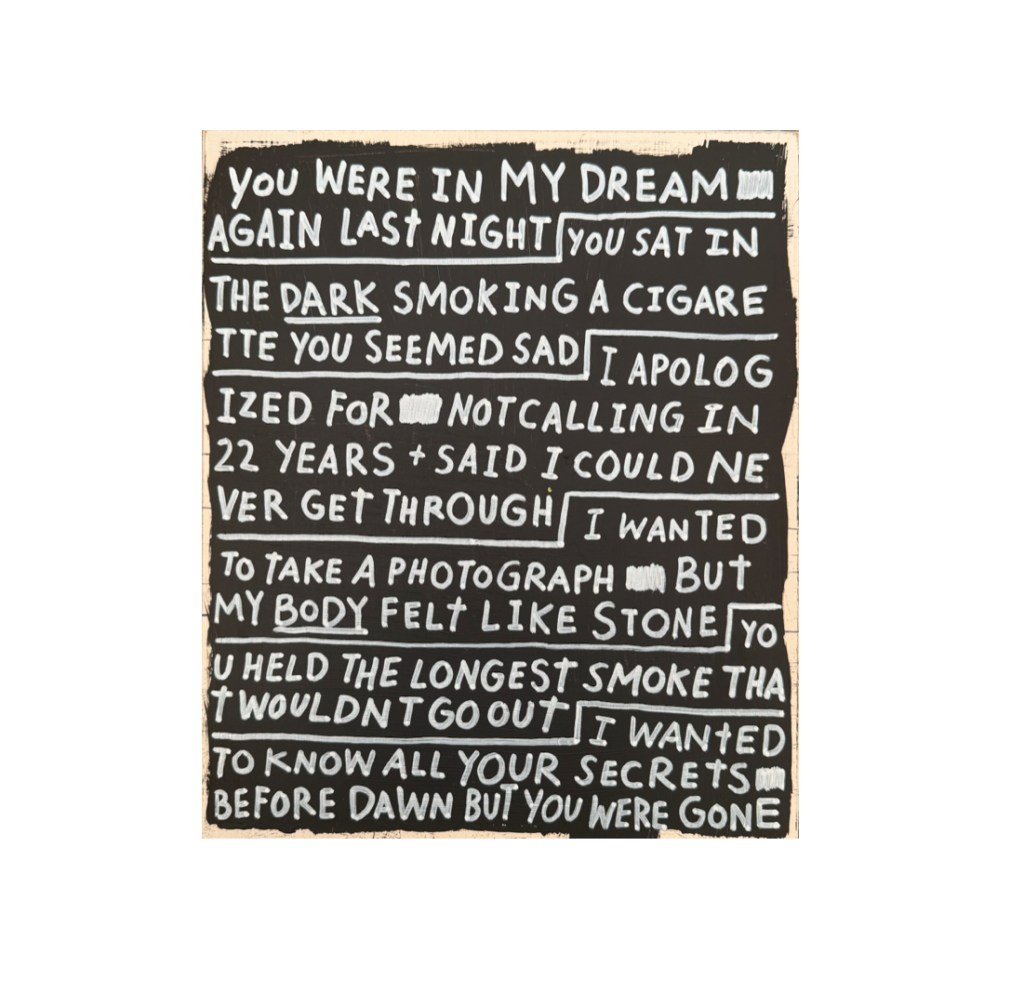 YOU WERE IN MY DREAM
AGAIN LAST NIGHT YOU SAT IN
THE DARK SMOKING A CIGARE
TTE YOU SEEMED SAD I APOLOG
IZED FOR NOT CALLING IN
22 YEARS + SAID I COULD NE
VER GET THROUGH I WANTED
TO TAKE A PHOTOGRAPH BUT
MY BODY FELT LIKE STONE YO
U HELD THE LONGEST SMOKE THA
T WOULDNT GO OUT I WANTED
TO KNOW ALL YOUR SECRETS
BEFORE DAWN BUT YOU WERE GONE